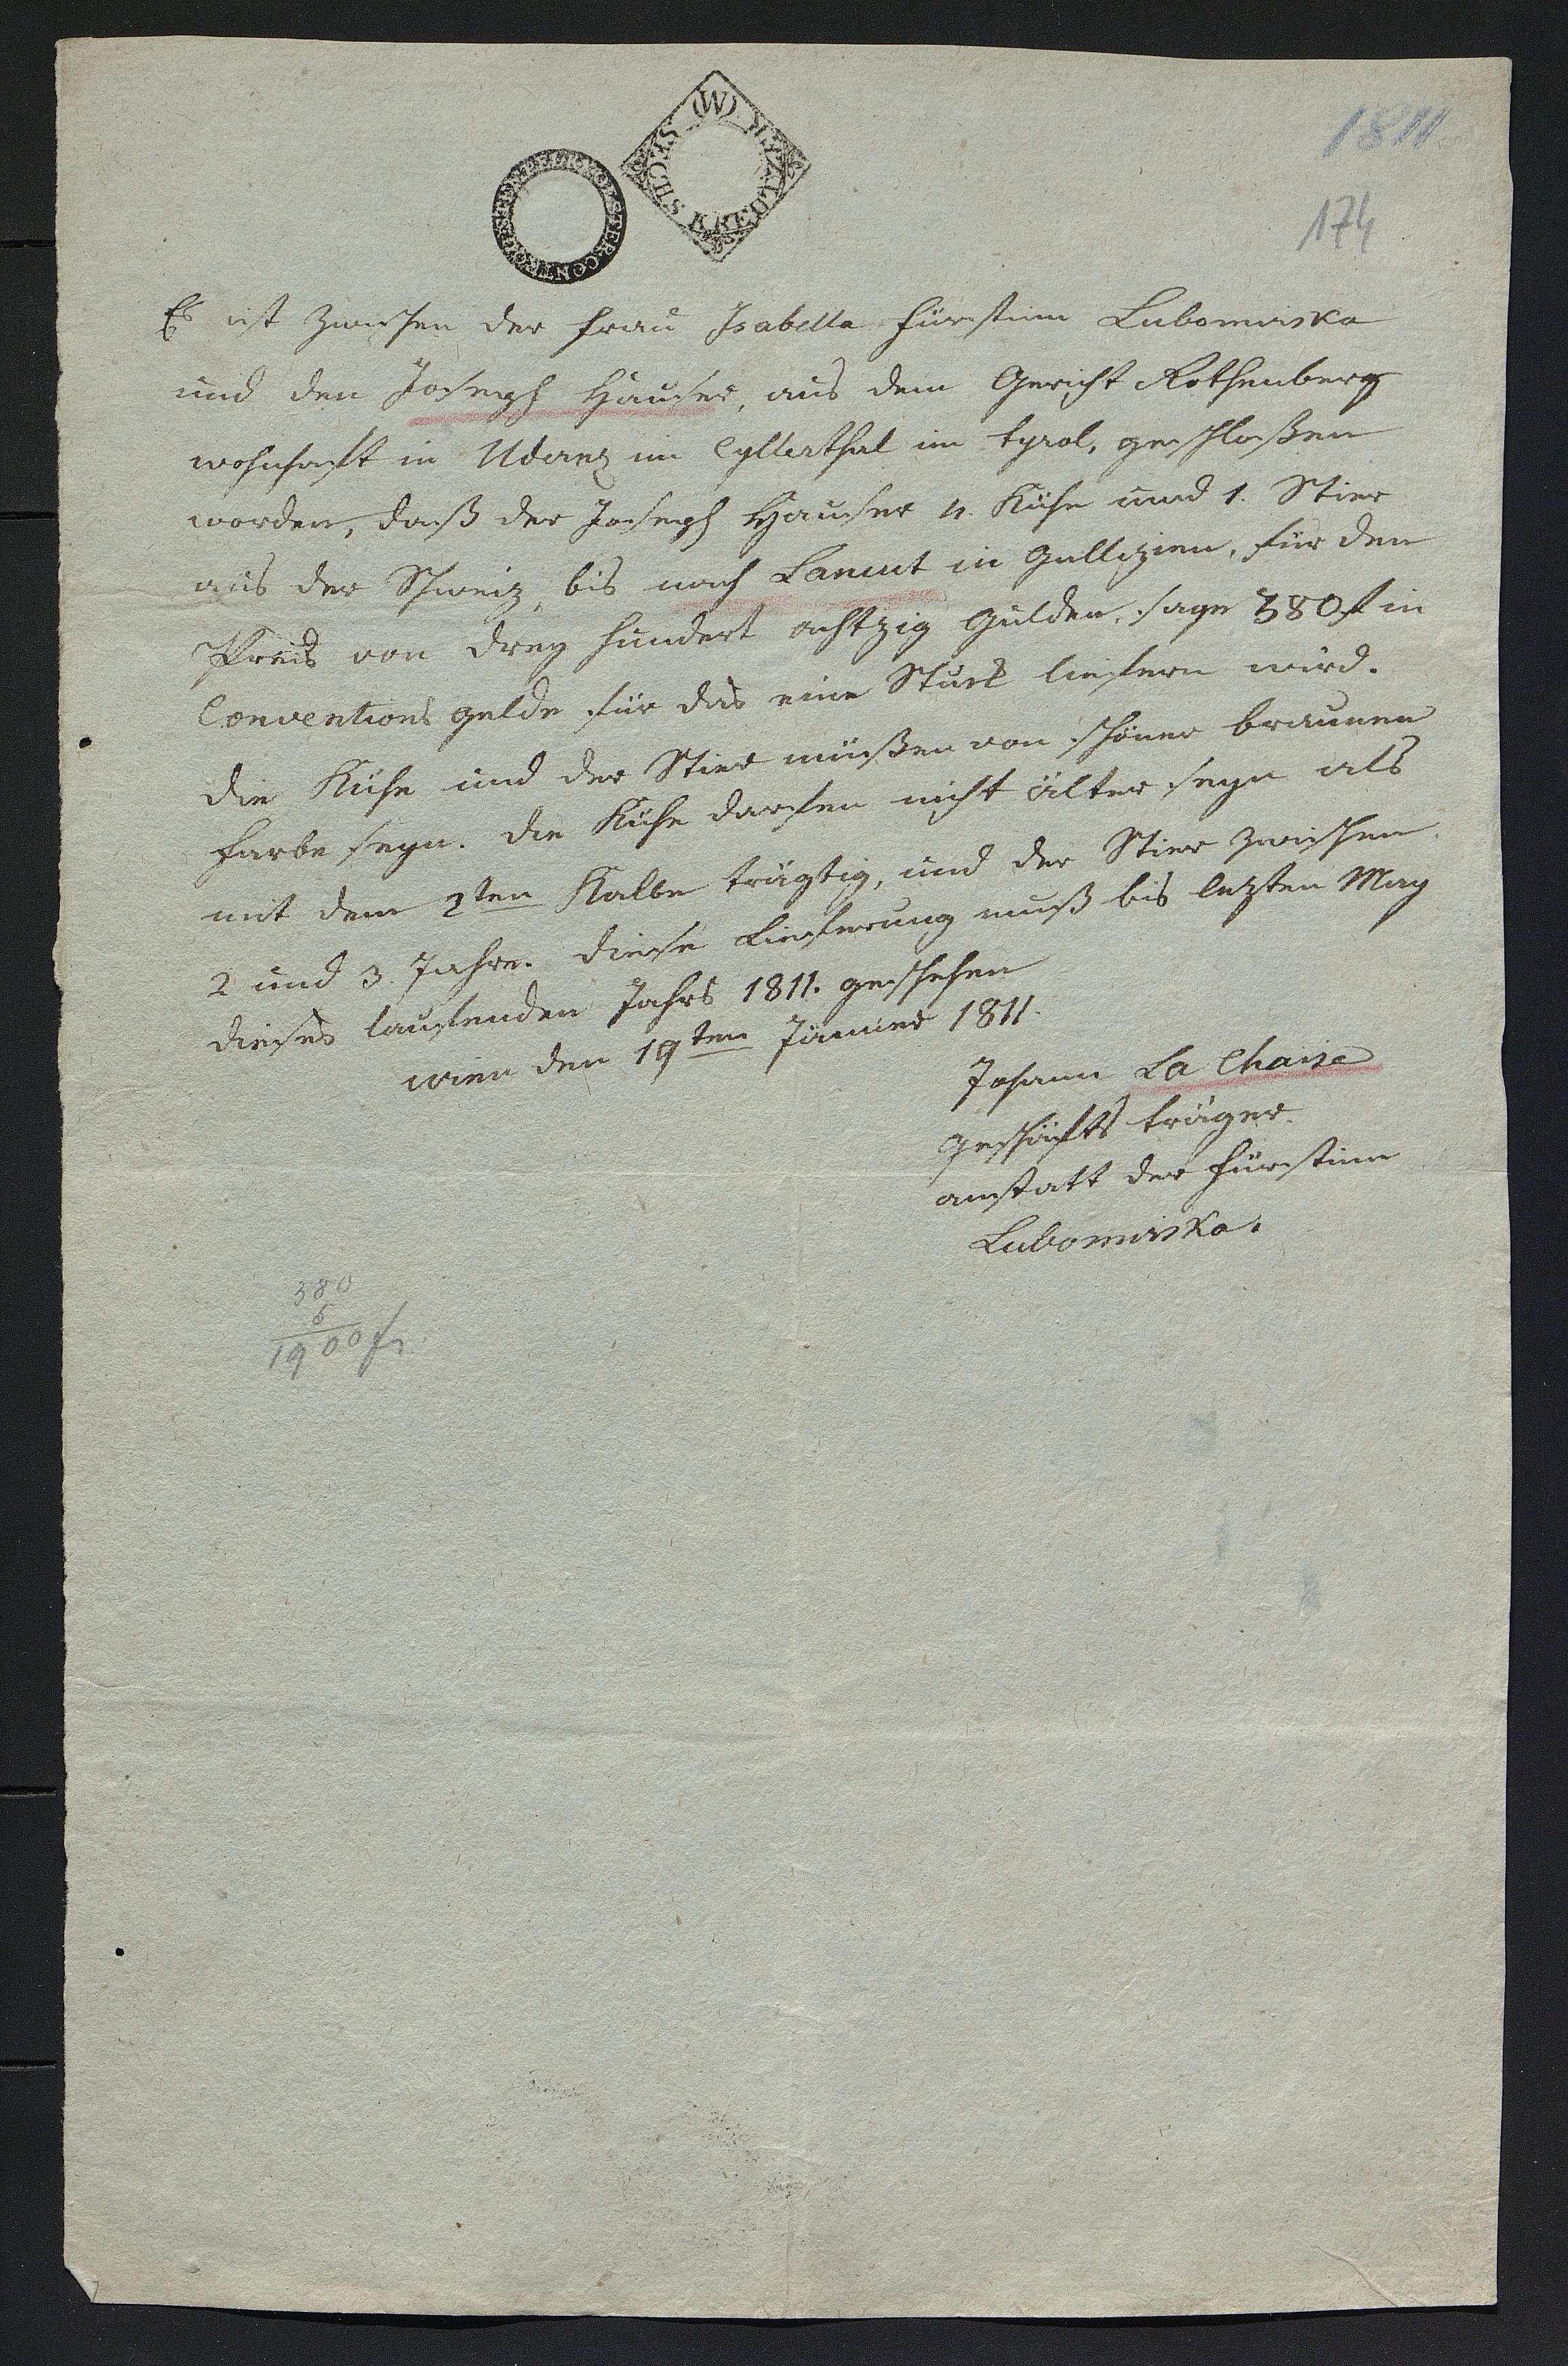 1811
174
(W)
SECHS KREUTZER
Es ist zwischen der Frau Isabella Fürstinn Lubomirska
und den Joseph Hauser, aus dem Gericht Rothenberg
wohnhaft in Uderns im Cyllerthal im Tyrol, geschloßen
worden, daß der Joseph Hauser 4. Kühe und 1. Stier
aus der Schweiz, bis nach Lancut in Gallizien, für den
Preis von drey hundert achtzig Gulden, sage 380 f in
Conventions gelde für das eine Stuck liefern wird.
Die Kühe und der Stier müßen von schöner braunen
Farbe seyn. Die Kühe darfen nicht älter seyn als
mit dem 2ten Kalbe trägtig, und der Stier zwischen
2 und 3 Jahre. Diese Lieferung muß bis letzten May
dieses laufenden Jahrs 1811. geschehen
Wien den 19ten Jänner 1811.
Johann La Chaise
Geschäfts träger
anstatt der Fürstinn
Lubomirska.
380
5
1900 f